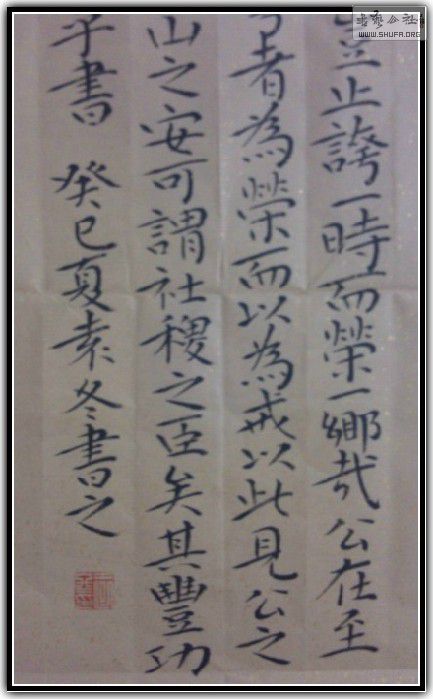 豈止誇一時而榮一鄉哉公在至
者為榮而以為戒以此見公之
山之安可謂社稷之臣矣其豐功
乎書 癸巳夏素冬書之
书艺公社
WWW.SHUFA.ORG